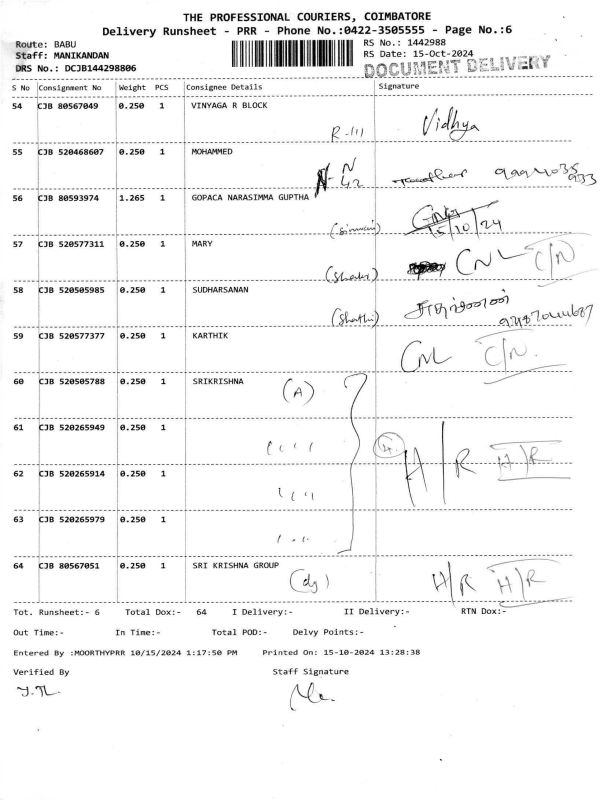 THE PROFESSIONAL COURIERS, COIMBATORE
Delivery Runsheet - PRR - Phone No.:0422-3505555 - Page No.:6
Route: BABU
RS No.: 1442988
Staff: MANIKANDAN
RS Date: 15-Oct-2024
DRS No.: DCJB144298806
DOCUMENT DELIVERY
S No Consignment No Weight PCS Consignee Details Signature
54 CJB 80567049 0.250 1 VINYAGA R BLOCK
R-111 Vidhya
55 CJB 520468607 0.250 1 MOHAMMED
N-N 42
56 CJB 80593974 1.265 1 GOPACA NARASIMMA GUPTHA
15/10/24
57 CJB 520577311 0.250 1 MARY
CNL C/N
58 CJB 520505985 0.250 1 SUDHARSANAN
59 CJB 520577377 0.250 1 KARTHIK
CNL C/N.
60 CJB 520505788 0.250 1 SRIKRISHNA
(A)
61 CJB 520265949 0.250 1
H/R H/R
62 CJB 520265914 0.250 1
63 CJB 520265979 0.250 1
64 CJB 80567051 0.250 1 SRI KRISHNA GROUP
(dg) H/R H/R
Tot. Runsheet:- 6 Total Dox:- 64 I Delivery:- II Delivery:- RTN Dox:-
Out Time:- In Time:- Total POD:- Delvy Points:-
Entered By :MOORTHYPRR 10/15/2024 1:17:50 PM Printed On: 15-10-2024 13:28:38
Verified By Staff Signature